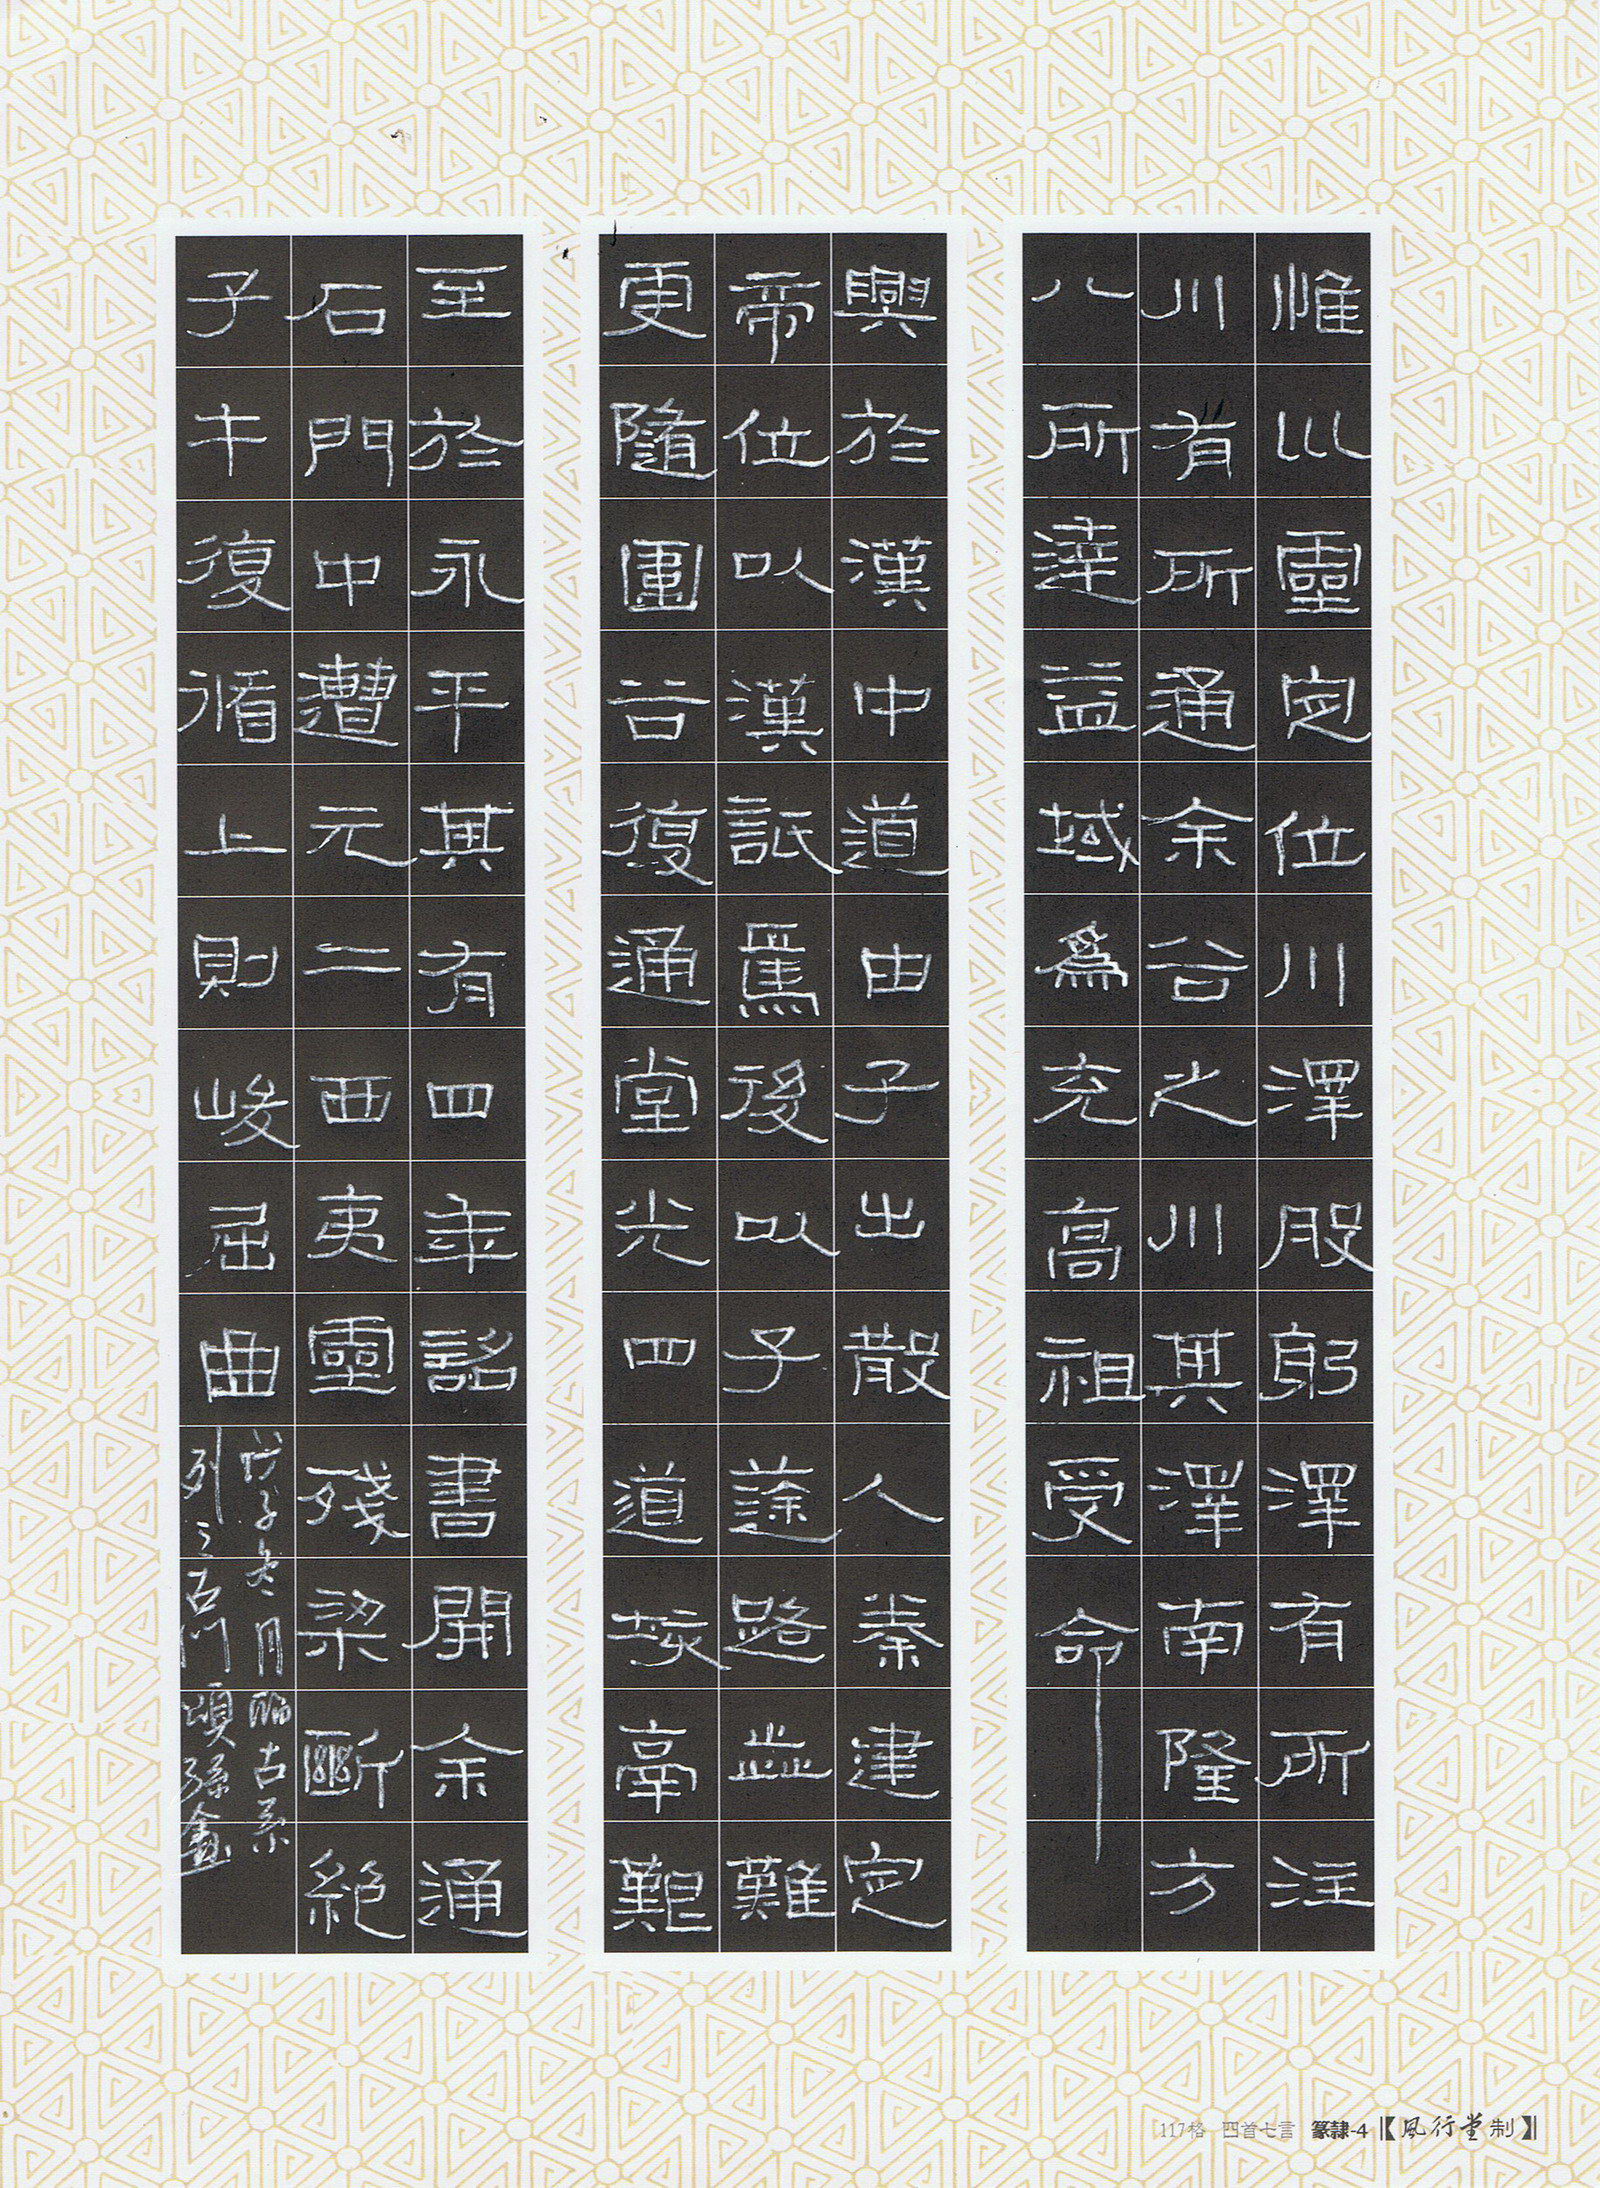 惟巛靈定位川澤股躬澤有所注
川有所通余谷之川其澤南隆方
八所達益域為充高祖受命
興於漢中道由子出散入秦建定
帝位以漢詆焉後以子途路歰難
更隨圍谷復通堂光四道垓鬲艱
至於永平其有四年詔書開余通
石門中遭元二西夷靈殘梁斷絕
子午復循上則峻屈曲
戊子冬月臨古系
列之石門頌孫鑫
117格 四首七言 篆隸-4 【風行堂制】